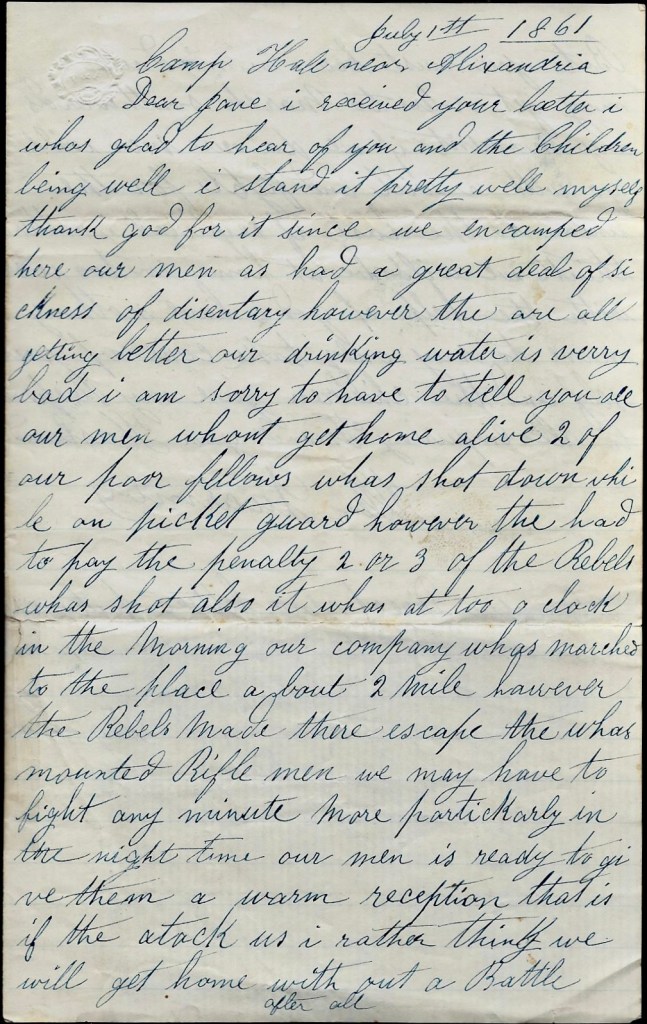 July 1st 1861
Camp Hale near Alixandria
Dear Jane i received your laetter i
whas glad to hear of you and the Children
being well i stand it pretty well myself
thank god for it since we encamped
here our men as had a great deal of si
ckness of disentary however the are all
getting better our drinking water is verry
bad i am sorry to have to tell you all
our men whont get home alive 2 of
our poor fellows whas shot down whi
le on picket guard however the had
to pay the penalty 2 or 3 of the Rebels
whas shot also it whas at too o clock
in the Morning our company whas marched
to the place a bout 2 mile however
the Rebels Made there escape the whas
mounted Rifle men we may have to
fight any minute More partickarly in
the night time our men is ready to gi
ve them a warm reception that is
if the atack us i rather think we
will get home with out a Battle
after all